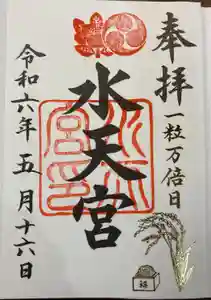 奉拝
一粒万倍日
水天宮
令和六年五月十六日